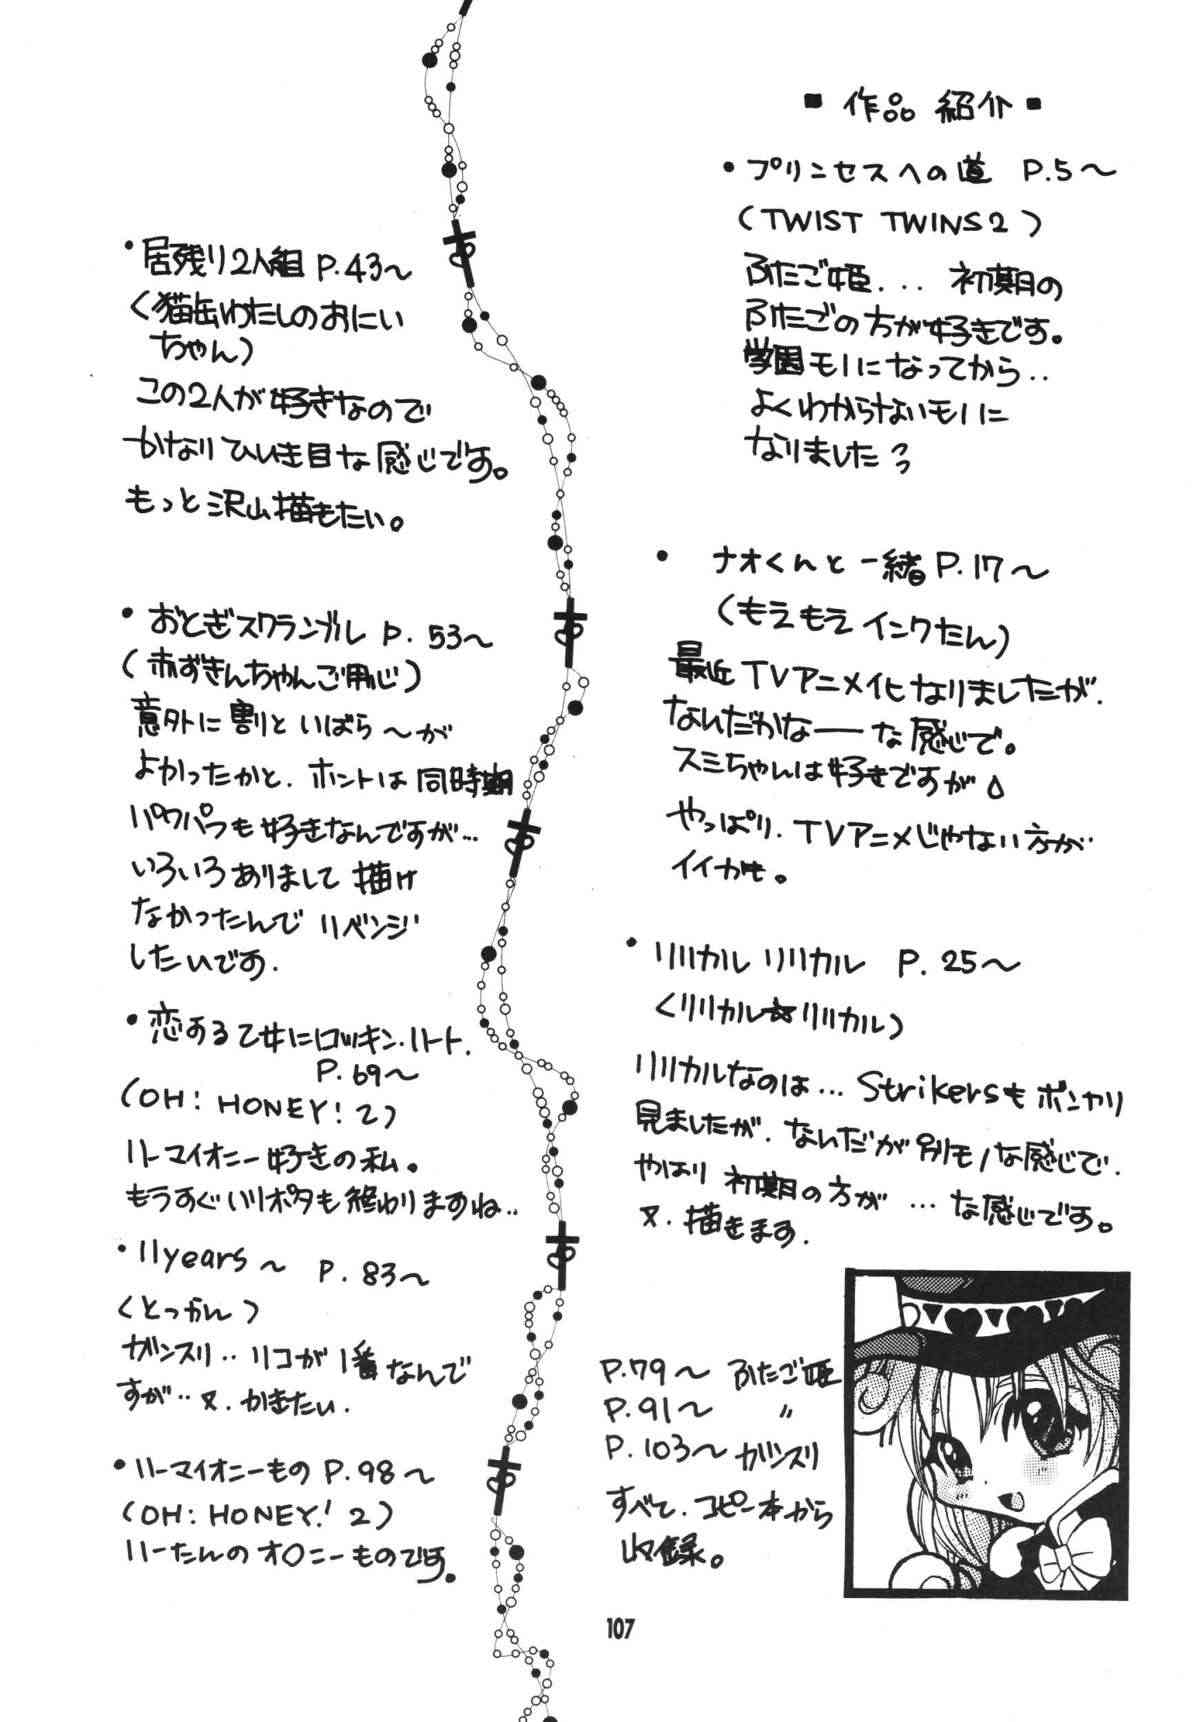 ■ 作品 紹介 ■
• プリンセスへの道 P.5〜
(TWIST TWINS 2)
ふたご姫... 初期の
ふたごの方が好きです。
学園モノになってから..
よくわからないモノに
なりました
• ナオくんと一緒 P.17〜
(もえもえインクたん)
最近TVアニメ化なりましたが、
なんだかなーな感じで。
スミちゃんは好きですが
やっぱり、TVアニメじゃない方が
イイかも。
• リリカル リリカル P.25〜
(リリカル☆リリカル)
リリカルなのは... Strikersもボンヤリ
見ましたが、なんだが別モノな感じで、
やはり初期の方が...な感じです。
又、描きます.
P.79〜 ふたご姫
P.91〜 〃
P.103〜 ガンスリ
すべて、コピー本から
収録。
• 居残り2人組 P.43〜
(猫缶わたしのおにい
ちゃん)
この2人が好きなので
かなりひいき目な感じです。
もっと沢山描きたい。
• おとぎスクランブル P.53〜
(赤ずきんちゃんご用心)
意外に割といばら〜が
よかったかと、ホントは同時期
パウパフも好きなんですが...
いろいろありまして描け
なかったんでリベンジ
したいです.
• 恋する乙女にロッキン・ハート.
P.69〜
(OH! HONEY! 2)
ハーマイオニー好きの私。
もうすぐハリポタも終わりますね..
• 11years〜 P.83〜
(とっかん)
ガンスリ..リコが1番なんで
すが..又、かきたい.
• ハーマイオニーもの P.98〜
(OH! HONEY! 2)
ハーたんのオ○ニーものです。
107